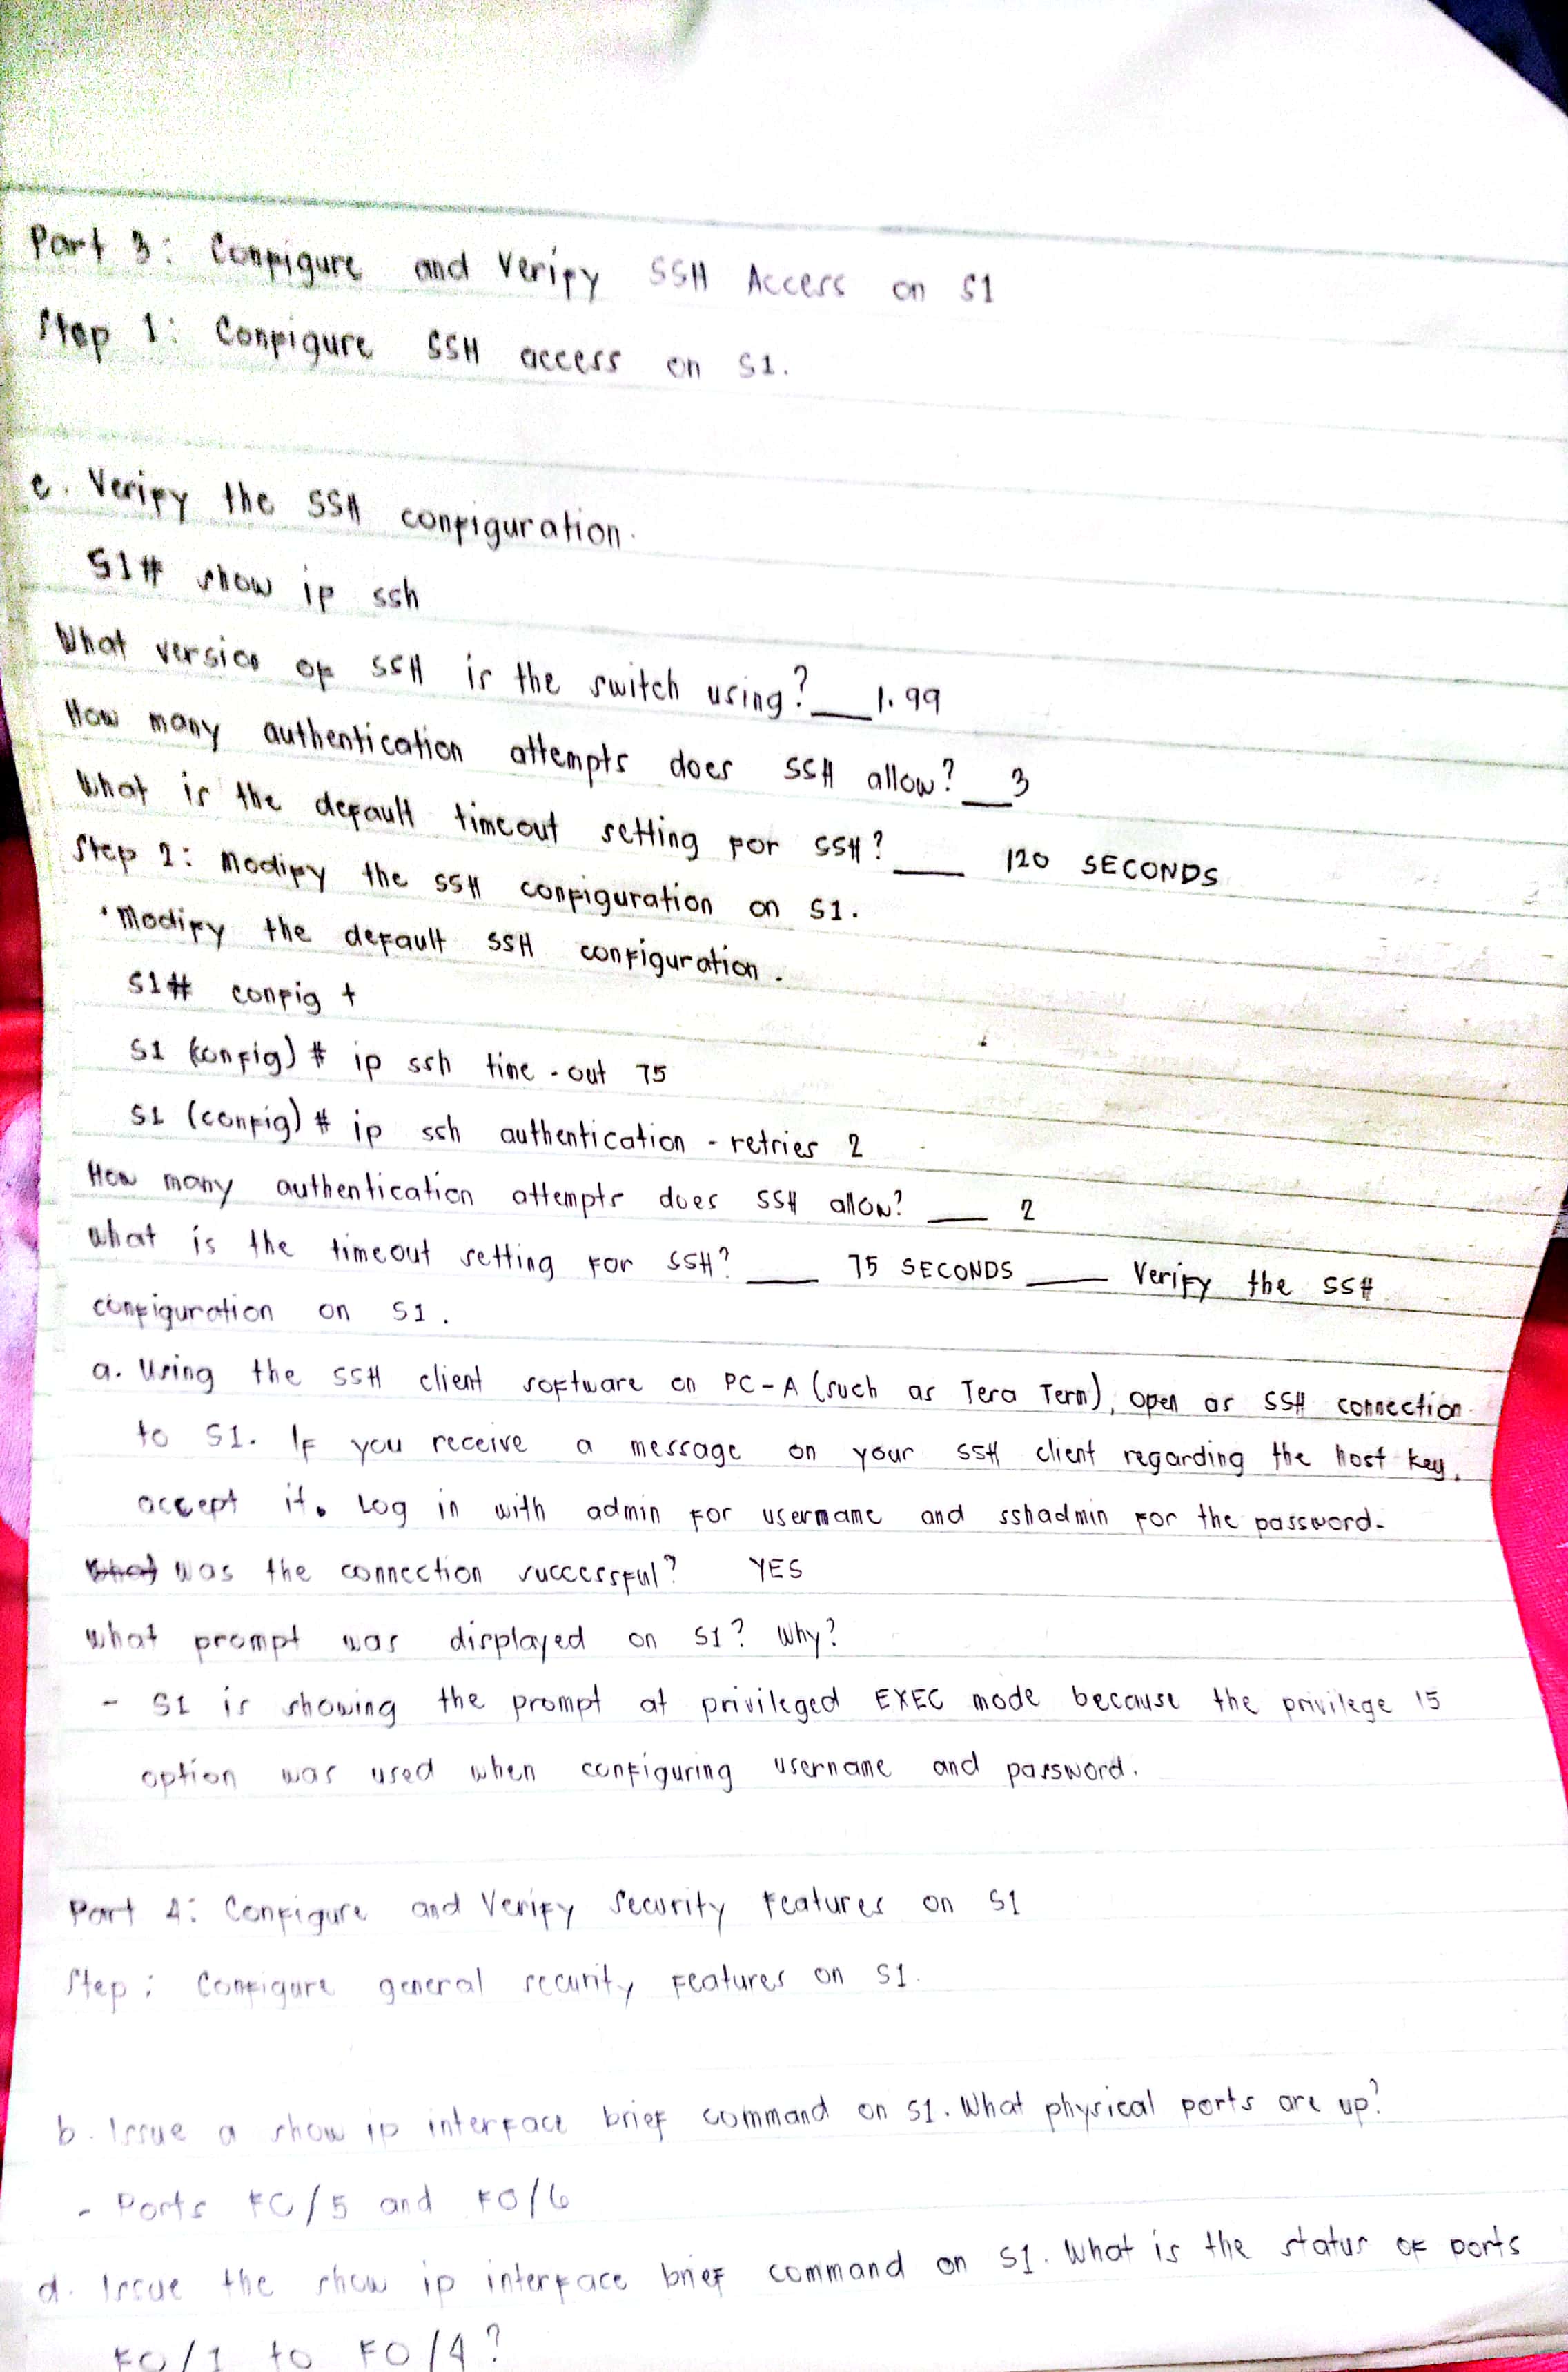 Part 3: Configure and Verify SSH Access on S1
Step 1: Configure SSH access on S1.
e. Verify the SSH configuration.
S1# show ip ssh
What version of SSH is the switch using? __ 1.99
How many authentication attempts does SSH allow? __ 3
What is the default timeout setting for SSH? __ 120 SECONDS
Step 2: Modify the SSH configuration on S1.
• Modify the default SSH configuration.
S1# config t
S1 (config) # ip ssh time-out 75
S1 (config) # ip ssh authentication - retries 2
How many authentication attempts does SSH allow? __ 2
What is the timeout setting for SSH? __ 75 SECONDS __ Verify the SSH
configuration on S1.
a. Using the SSH client software on PC-A (such as Tera Term), open as SSH connection
to S1. If you receive a message on your SSH client regarding the host key,
accept it. Log in with admin for username and sshadmin for the password.
Was the connection successful? YES
What prompt was displayed on S1? Why?
- S1 is showing the prompt at privileged EXEC mode because the privilege 15
option was used when configuring username and password.
Part 4: Configure and Verify Security Features on S1
Step: Configure general security features on S1.
b. Issue a show ip interface brief command on S1. What physical ports are up?
- Ports F0/5 and F0/6
d. Issue the show ip interface brief command on S1. What is the status of ports
F0/1 to F0/4?